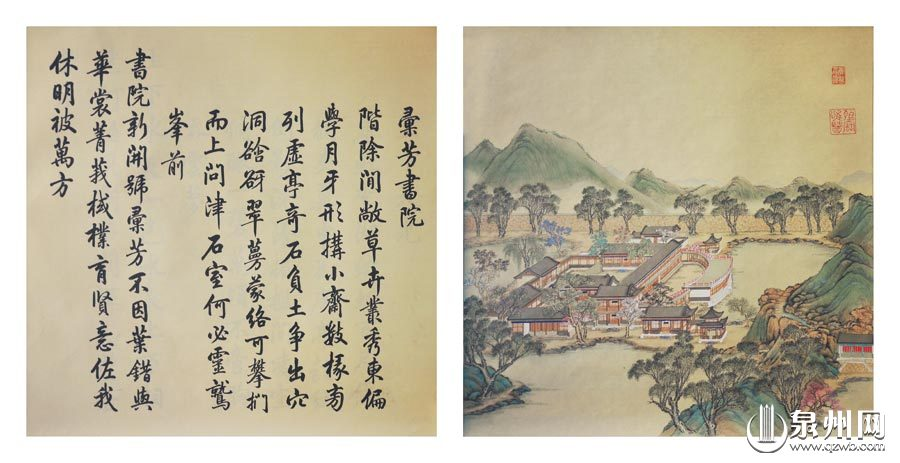 彙芳書院
階除閒敞草卉叢秀東偏
學月牙形搆小齋數椽旁
列虛亭奇石負土争出穴
洞谽谺翠蔓蒙絡可攀捫
而上問津石室何必靈鷲
峯前
書院新開號彙芳不因葉錯與
華裳菁莪棫樸育賢意佐我
休明被萬方
泉州网
www.qzwb.com